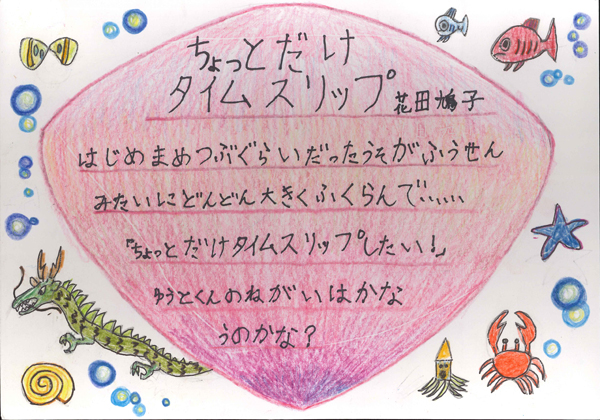 ちょっとだけ
タイムスリップ 花田鳩子
はじめまめつぶぐらいだったうそがふうせん
みたいにどんどん大きくふくらんで……
「ちょっとだけタイムスリップしたい!」
ゆうとくんのねがいはかな
うのかな?